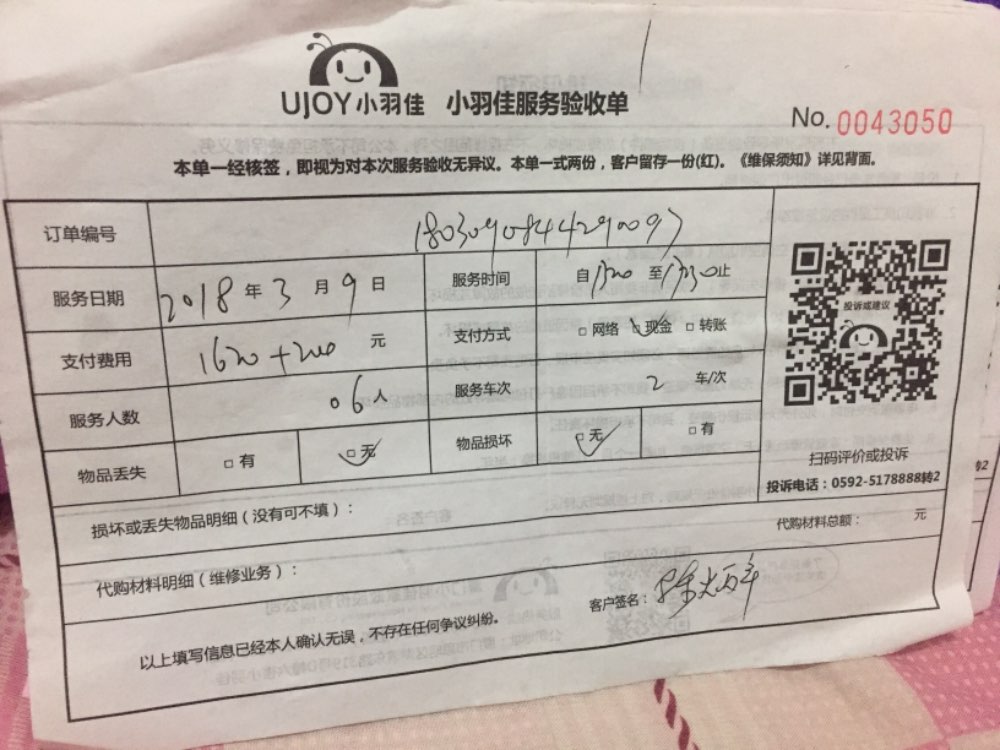 UJOY小羽佳 小羽佳服务验收单
No. 0043050
本单一经核签，即视为对本次服务验收无异议。本单一式两份，客户留存一份(红)。《维保须知》详见背面。
订单编号 1803090844290097
服务日期 2018年3月9日 服务时间 自 至 止
支付费用 1620+200 元 支付方式 □网络 □现金 □转账
服务人数 06人 服务车次 2 车/次
物品丢失 □有 □无 物品损坏 □无 □有
投诉或建议
扫码评价或投诉
投诉电话：0592-5178888转2
损坏或丢失物品明细（没有可不填）：
代购材料总额： 元
代购材料明细（维修业务）：
客户签名：
以上填写信息已经本人确认无误，不存在任何争议纠纷。